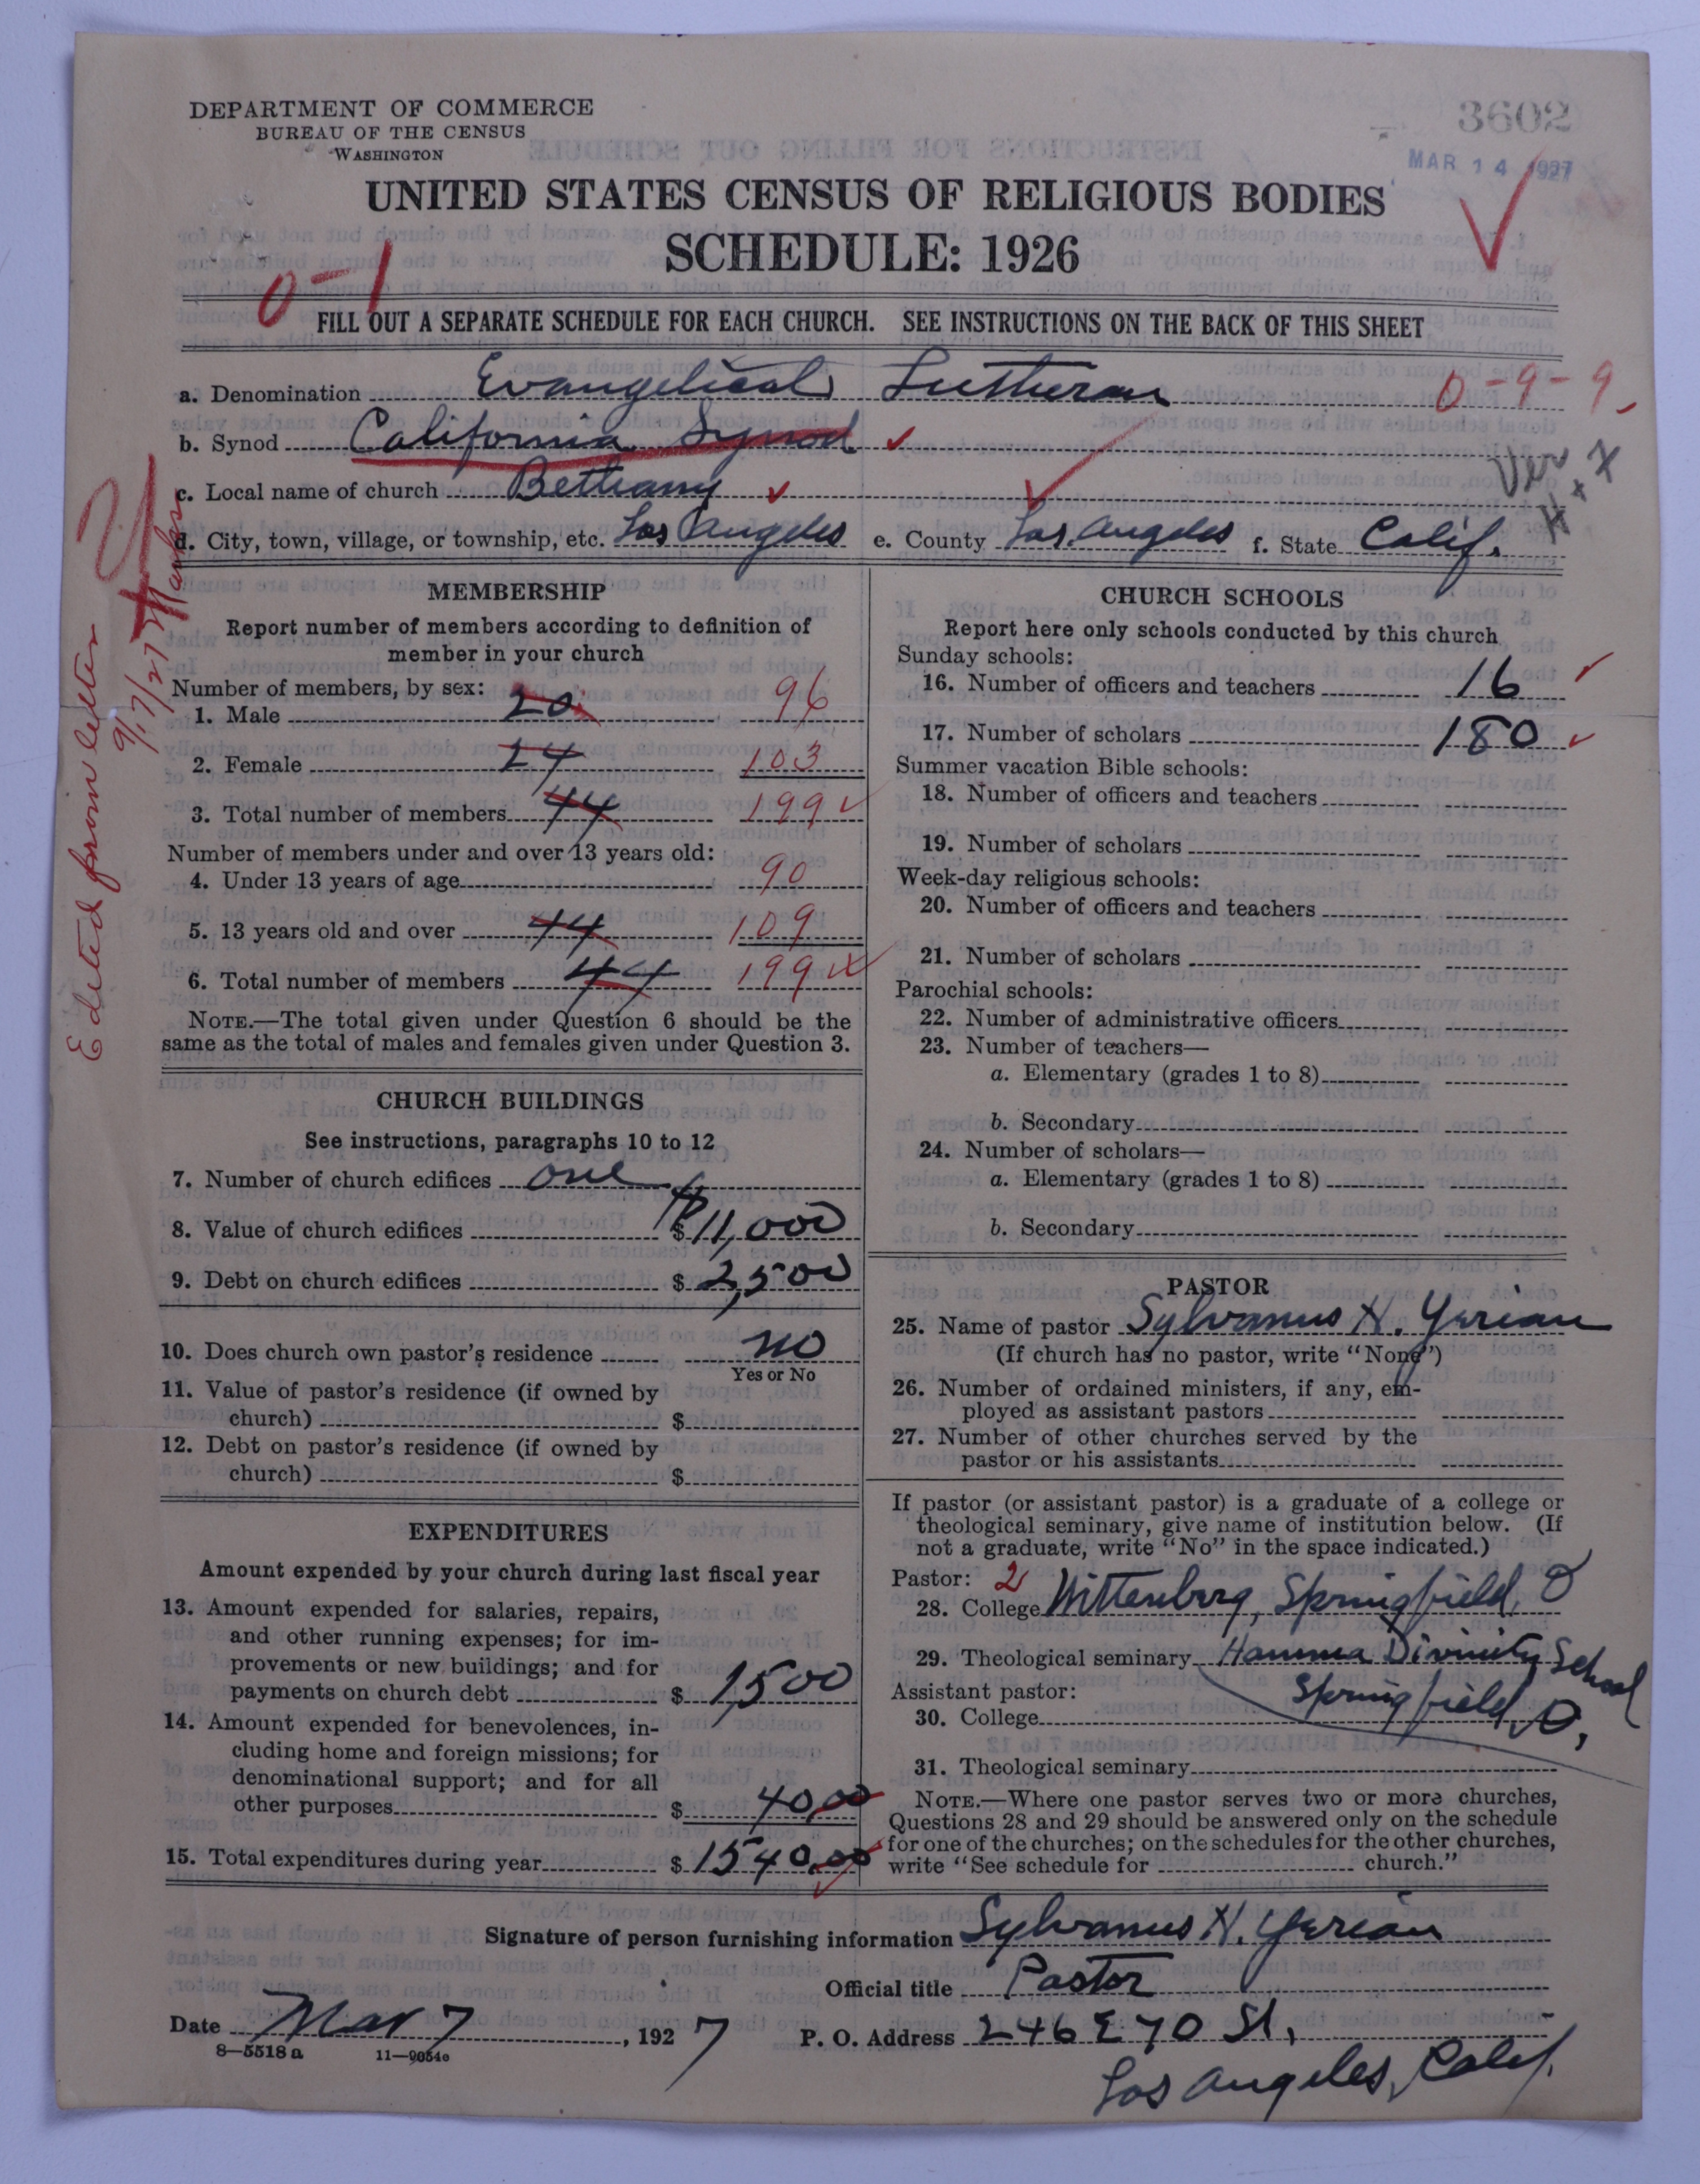 DEPARTMENT OF COMMERCE
BUREAU OF THE CENSUS
WASHINGTON
3602
MAR 14 1927
UNITED STATES CENSUS OF RELIGIOUS BODIES
SCHEDULE: 1926
0-1
FILL OUT A SEPARATE SCHEDULE FOR EACH CHURCH. SEE INSTRUCTIONS ON THE BACK OF THIS SHEET
a. Denomination Evangelical Lutheran 0-9-9
b. Synod California Synod
c. Local name of church Bethany
Ver
d. City, town, village, or township, etc. Los Angeles e. County Los Angeles f. State Calif.
Edited from letter
9/17/27
MEMBERSHIP
Report number of members according to definition of
member in your church
Number of members, by sex:
1. Male 20 96
2. Female 24 103
3. Total number of members 44 199
Number of members under and over 13 years old:
4. Under 13 years of age 90
5. 13 years old and over 44 109
6. Total number of members 44 199
NOTE.—The total given under Question 6 should be the
same as the total of males and females given under Question 3.
CHURCH BUILDINGS
See instructions, paragraphs 10 to 12
7. Number of church edifices one
8. Value of church edifices $ 11,000
9. Debt on church edifices $ 2,500
10. Does church own pastor's residence no
Yes or No
11. Value of pastor's residence (if owned by
church) $
12. Debt on pastor's residence (if owned by
church) $
EXPENDITURES
Amount expended by your church during last fiscal year
13. Amount expended for salaries, repairs,
and other running expenses; for im-
provements or new buildings; and for
payments on church debt $ 1,500
14. Amount expended for benevolences, in-
cluding home and foreign missions; for
denominational support; and for all
other purposes $ 40.00
15. Total expenditures during year $ 1540.00
CHURCH SCHOOLS
Report here only schools conducted by this church
Sunday schools:
16. Number of officers and teachers 16
17. Number of scholars 180
Summer vacation Bible schools:
18. Number of officers and teachers
19. Number of scholars
Week-day religious schools:
20. Number of officers and teachers
21. Number of scholars
Parochial schools:
22. Number of administrative officers
23. Number of teachers—
a. Elementary (grades 1 to 8)
b. Secondary
24. Number of scholars—
a. Elementary (grades 1 to 8)
b. Secondary
PASTOR
25. Name of pastor Sylvanus H. Yerian
(If church has no pastor, write "None")
26. Number of ordained ministers, if any, em-
ployed as assistant pastors
27. Number of other churches served by the
pastor or his assistants
If pastor (or assistant pastor) is a graduate of a college or
theological seminary, give name of institution below. (If
not a graduate, write "No" in the space indicated.)
Pastor: 2
28. College Wittenberg, Springfield, O
29. Theological seminary Hamma Divinity School
Springfield, O,
Assistant pastor:
30. College
31. Theological seminary
NOTE.—Where one pastor serves two or more churches,
Questions 28 and 29 should be answered only on the schedule
for one of the churches; on the schedules for the other churches,
write "See schedule for church."
Signature of person furnishing information Sylvanus H. Yerian
Official title Pastor
Date Mar 7, 1927 P. O. Address 246 E 70 St,
Los Angeles, Calif.
8—5518a 11—9054e